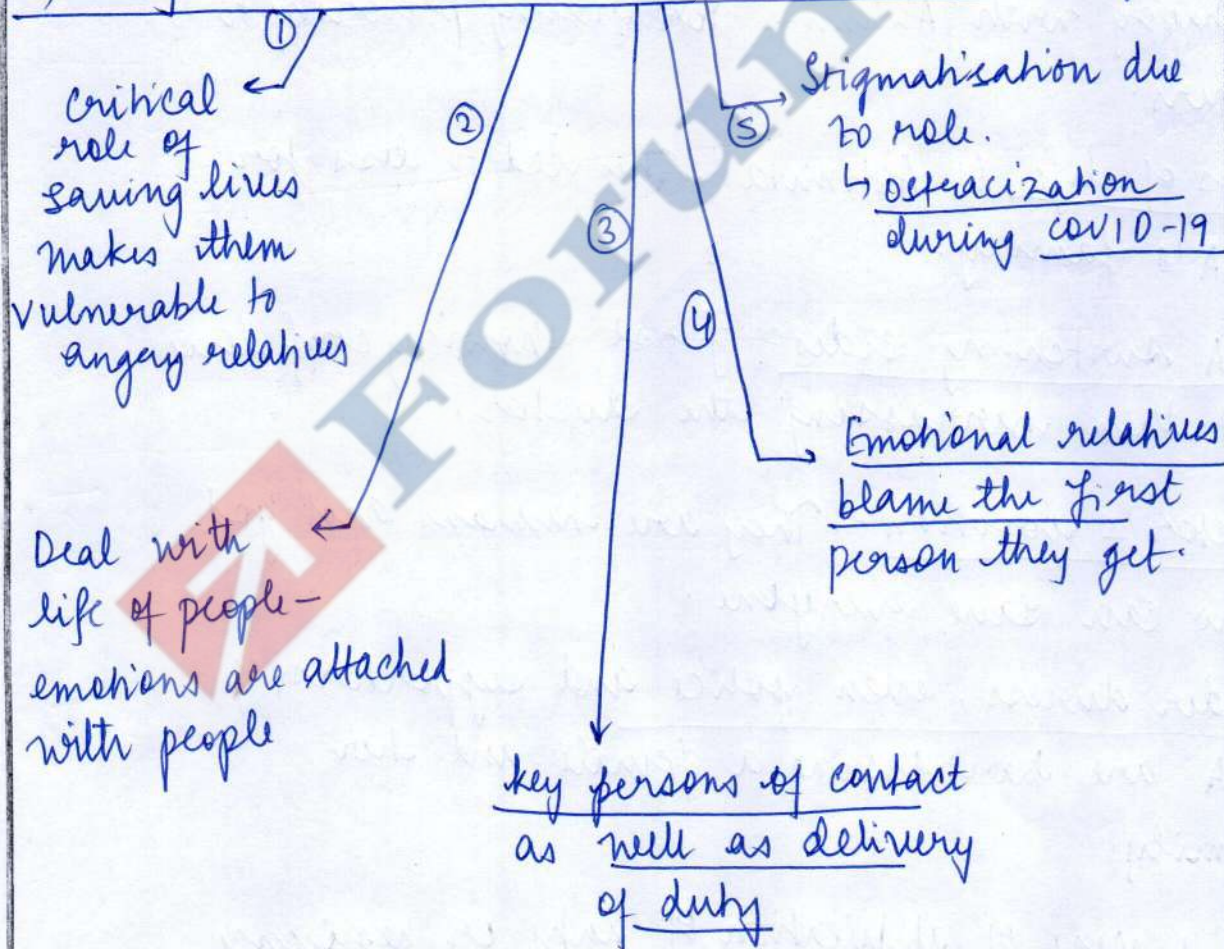 ①
critical
role of
saving lives
makes them
vulnerable to
angry relatives
②
Deal with
life of people-
emotions are attached
with people
③
key persons of contact
as well as delivery
of duty
④
Emotional relatives
blame the first
person they get.
⑤
Stigmatisation due
to role.
↳ ostracization
during COVID-19
Forum